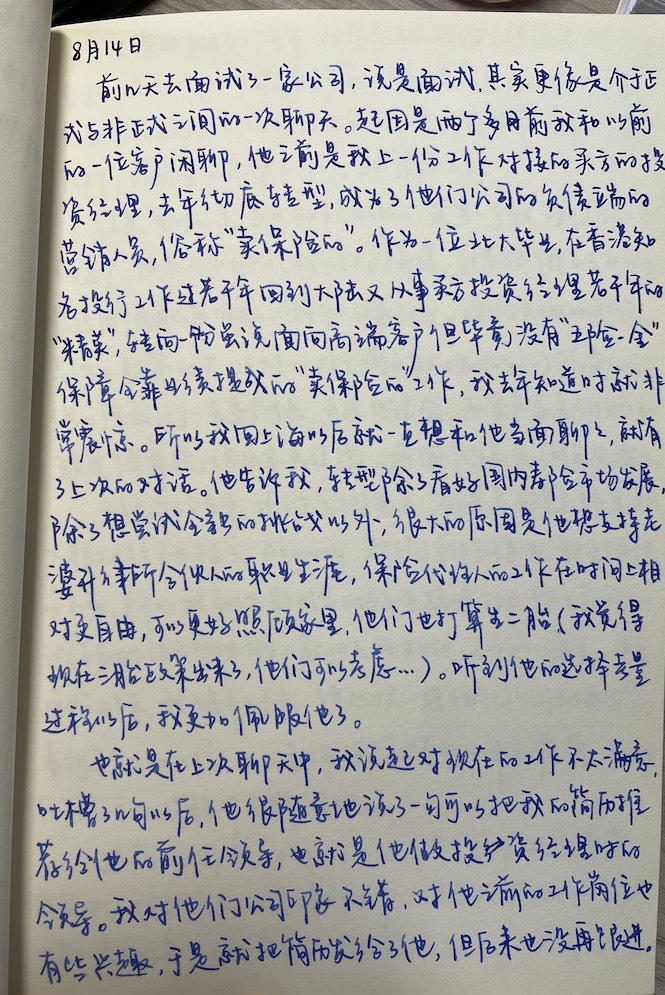 8月14日
前几天去面试了一家公司，说是面试，其实更像是介于正
式与非正式之间的一次聊天。起因是两个多月前我和以前
的一位客户闲聊，他之前是我上一份工作对接的买方的投
资经理，去年彻底转型，成为了他们公司的负债端的
营销人员，俗称“卖保险的”。作为一位北大毕业，在香港知
名投行工作过若干年回到大陆又从事买方投资经理若干年的
“精英”，转向一份虽说面向高端客户但毕竟没有“五险一金”
保障全靠业绩提成的“卖保险的”工作，我去年知道时就非
常震惊。所以我回上海以后就一直想和他当面聊聊，就有
了上次的对话。他告诉我，转型除了看好国内寿险市场发展，
除了想尝试全新的挑战以外，很大的原因是他想支持老
婆升律所合伙人的职业生涯，保险代理人的工作在时间上相
对更自由，可以更好照顾家里，他们也打算生二胎（我觉得
现在三胎政策出来了，他们可以考虑…）。听到他的选择考量
过程以后，我更加佩服他了。
也就是在上次聊天中，我说起对现在的工作不太满意，
吐槽了几句以后，他很随意地说了一句可以把我的简历推
荐给他的前任领导，也就是他做投资经理时的
领导。我对他们公司印象不错，对他之前的工作岗位也
有些兴趣，于是就把简历发给了他，但后来也没再跟进。